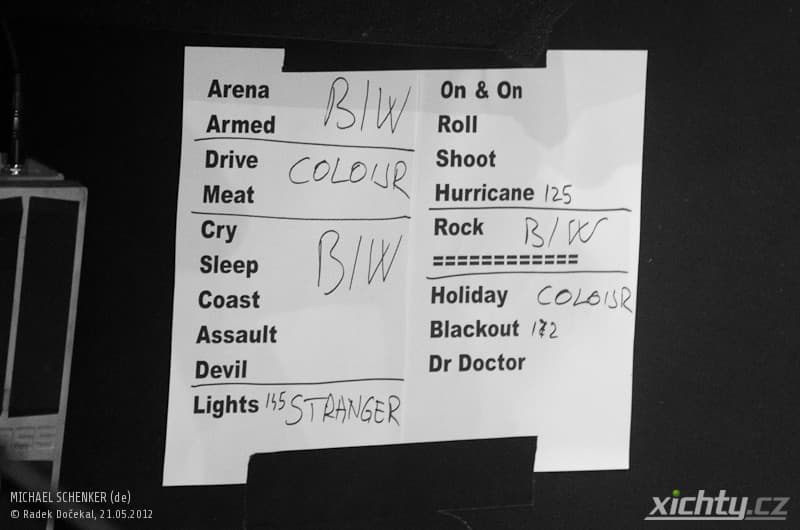 Arena B/W
Armed
Drive COLOUR
Meat
Cry
Sleep B/W
Coast
Assault
Devil
Lights 145 STRANGER
On & On
Roll
Shoot
Hurricane 125
Rock B/W
============
Holiday COLOUR
Blackout 172
Dr Doctor
MICHAEL SCHENKER (de)
© Radek Dočekal, 21.05.2012
xichty.cz